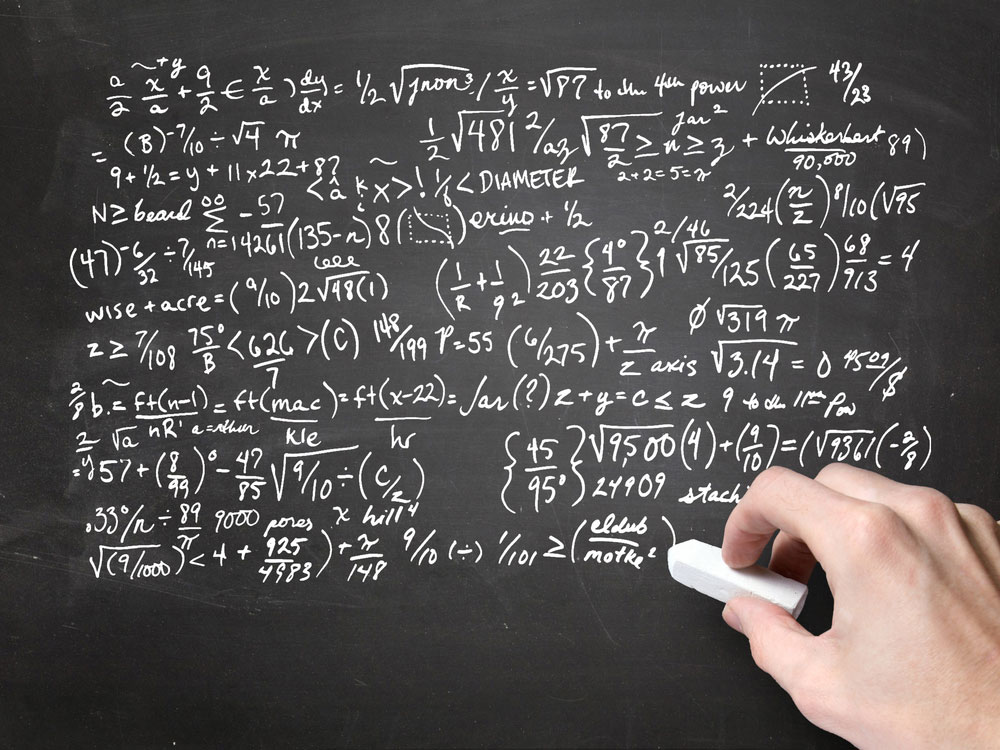 a/2 x/a ~+y + 9/2 € x/a ) dy/dx = 1/2 √jnon³ / x/y = √87 to the 4th power 43/23
= (B)⁻⁷/10 ÷ √4 π 1/2 √481 2/az √87/2 ≥ n ≥ z jar² + Whiskerbart/90,000 89)
9 + 1/2 = y + 11 x 22 + 8? 2+2=5=π
<â k x>! 1/8 < DIAMETER
N ≥ beard ∞ Σ n=14261 -57 (135-n) 8 ( ) erino + 1/2 2/224 (n/z) 8/10 (√95
(47)⁻⁶/32 ÷ 7/145 (1/R + 1/9 2) 22/203 {4°/87} 9 2/46 √85/125 (65/227) 68/913 = 4
wise + acre = (9/10) 2 √98(1)
z ≥ 7/108 75°/B <626/7> (C) 148/199 P = 55 (6/275) + π/z axis Ø √319 π √3.14 = 0 4502/$
2/8 b. = ft(n-1)/nR' = ft(mac)/kle = ft(x-22)/hr = Jar(?) z + y = c ≤ z 9 to the 11th Pow
2/y √a a=rthur
= 57 + (8/99)° - 47/85 √9/10 ÷ (C/z) {45/95°} √9,500 (4) + (9/10) = (√9361 (-2/8)
24909
.33°/n ÷ 89/π 9000 pores x hill⁴
√(9/1000) < 4 + 925/4983) + π/148 9/10 (÷) 1/101, ≥ (eldub/motke²)